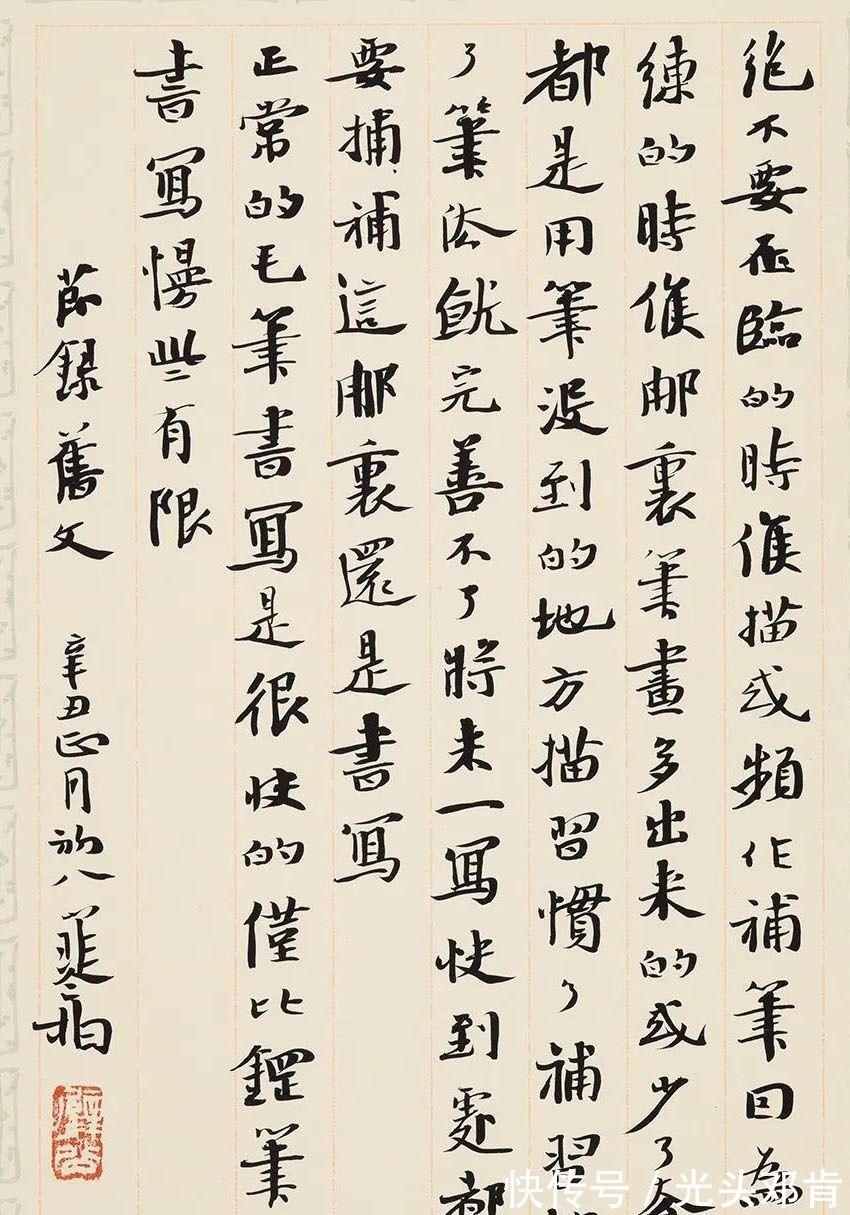 絶不要在臨的時候描或頻作補筆因為
練的時候那裏筆畫多出來的或少了
都是用筆没到的地方描習慣了補習
了筆法就完善不了將來一寫快到處都
要捕補這那裏還是書寫
正常的毛筆書寫是很快的僅比鋼筆
書寫慢些有限
節録舊文 辛丑正月初八
快传号 / 光头邓肯